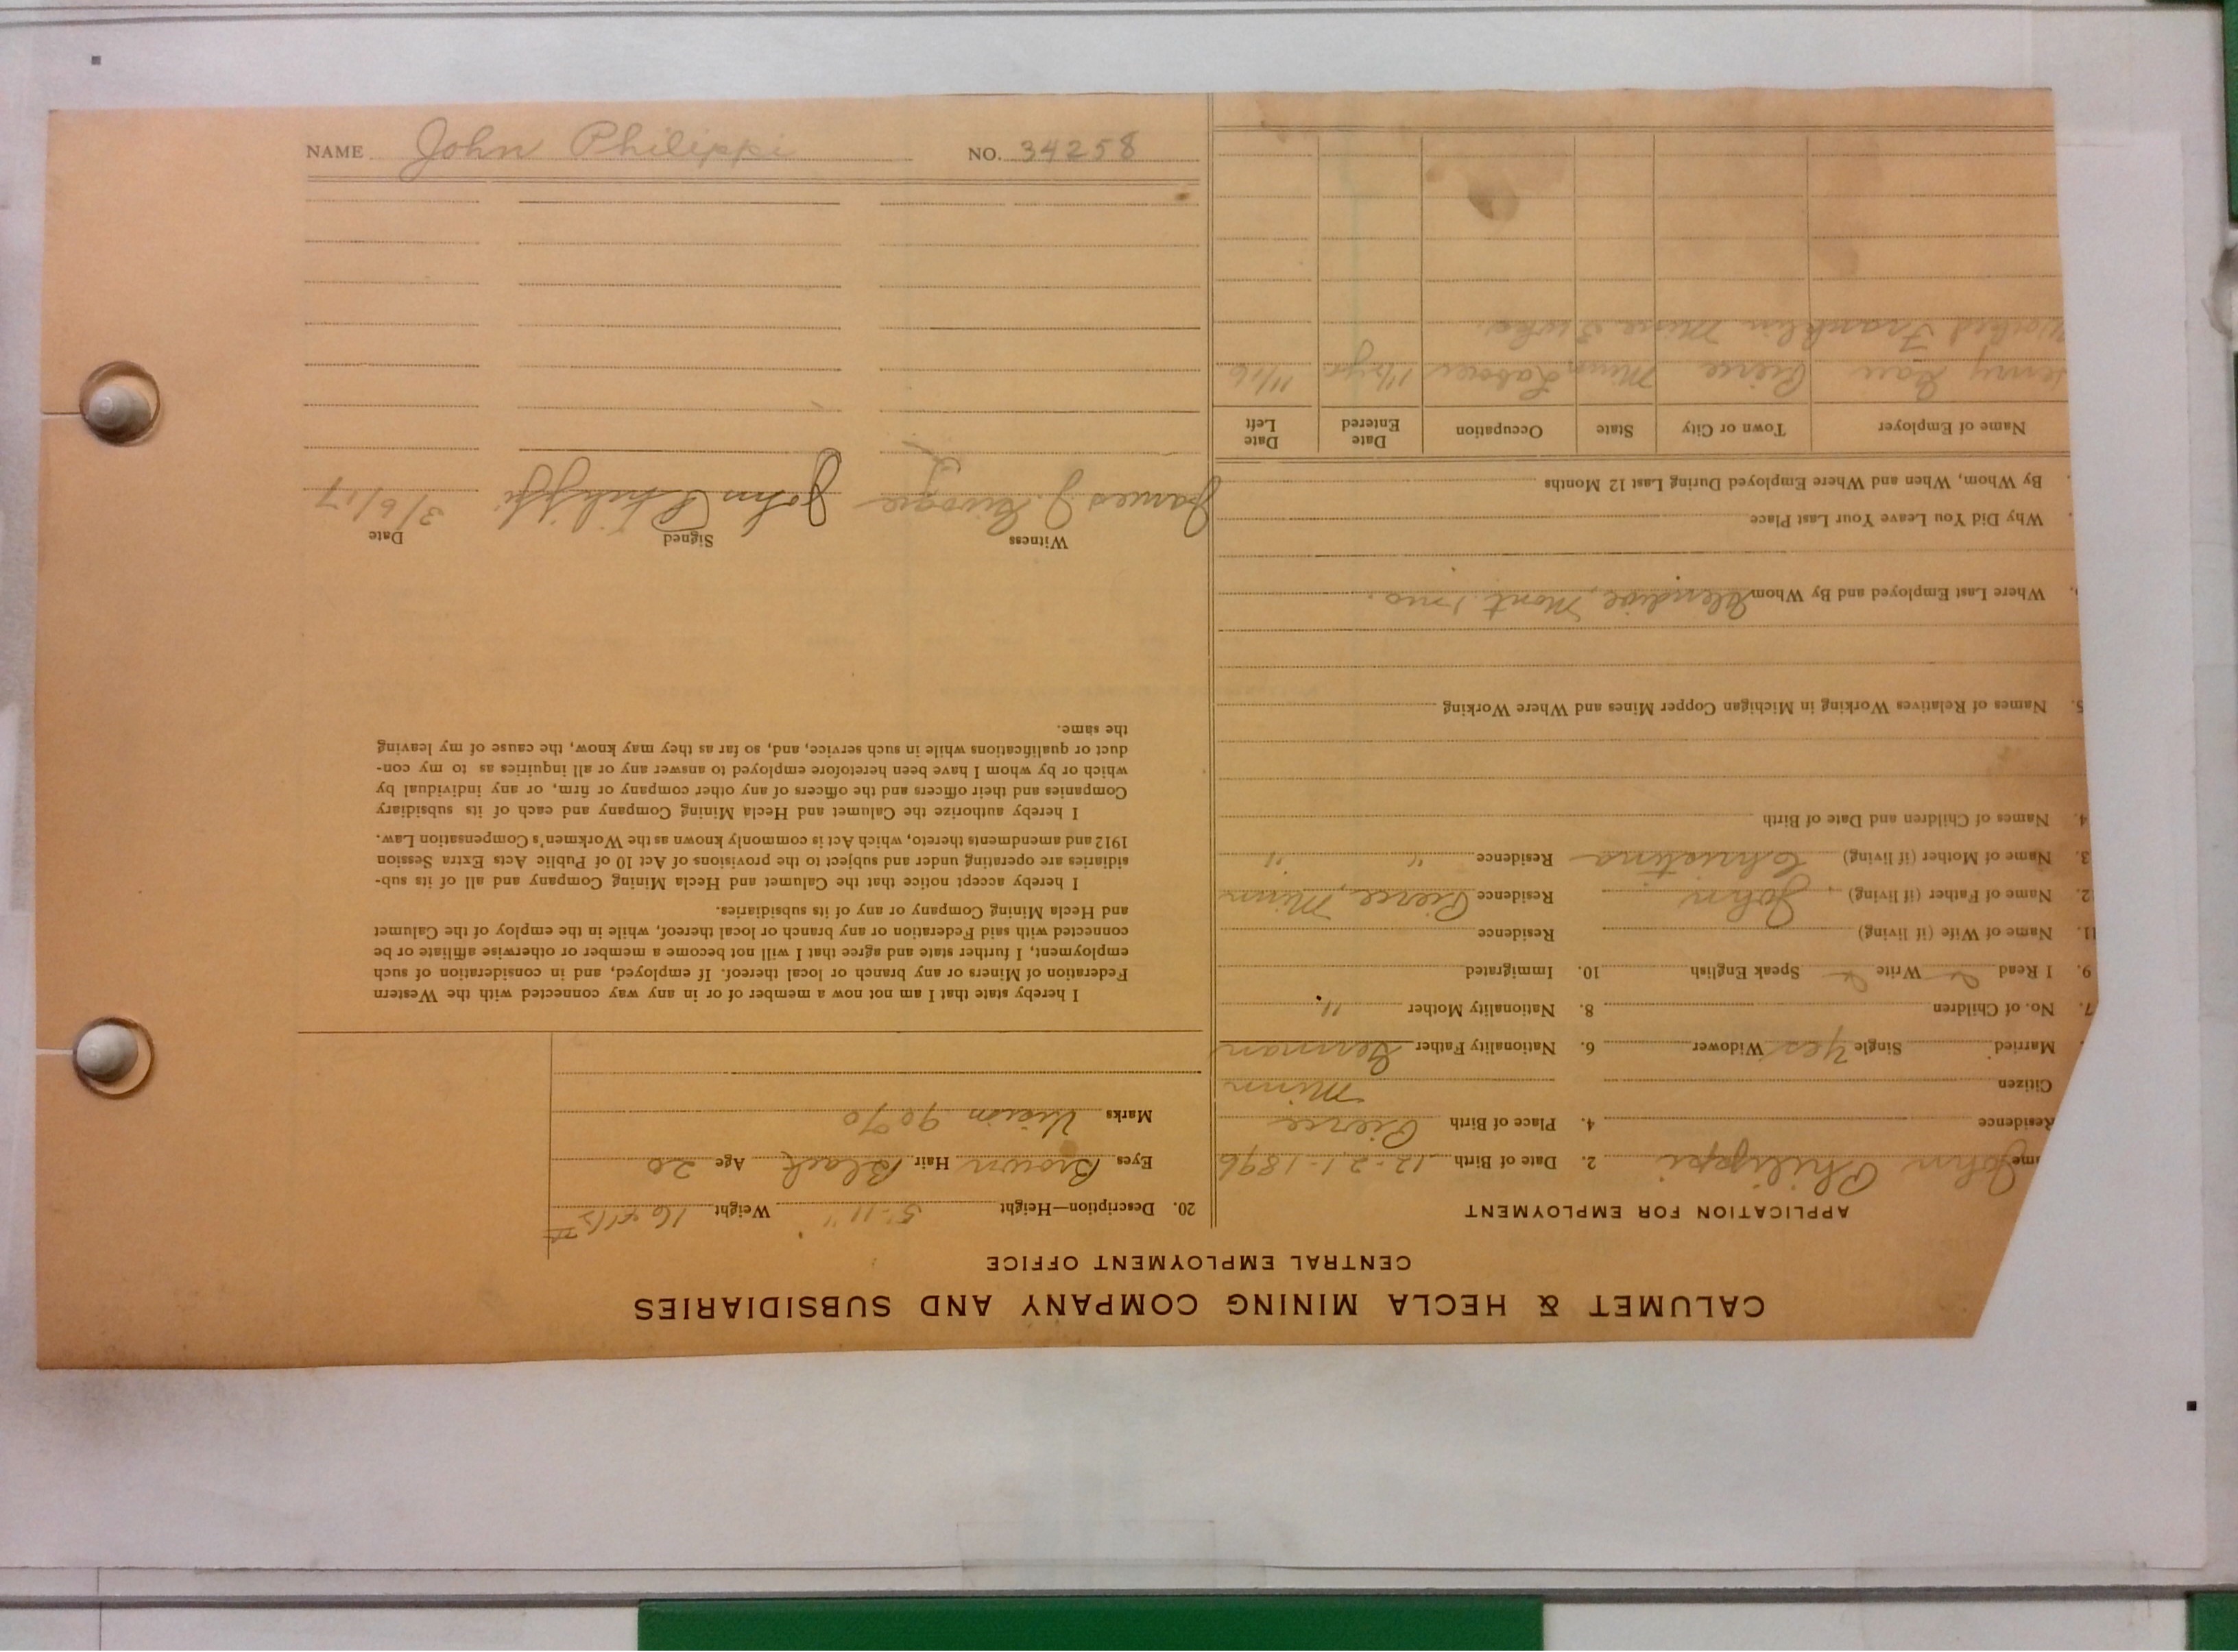 NAME John Philippi NO. 34258
CALUMET & HECLA MINING COMPANY AND SUBSIDIARIES
CENTRAL EMPLOYMENT OFFICE
APPLICATION FOR EMPLOYMENT
me John Philippi 2. Date of Birth 12-21-1896
Residence 4. Place of Birth Pierce
Citizen Minn
Married Single Yes Widower 6. Nationality Father German
7. No. of Children 8. Nationality Mother "
9. I Read Write Speak English 10. Immigrated
11. Name of Wife (if living) Residence
12. Name of Father (if living) John Residence Pierce, Minn
3. Name of Mother (if living) Christina Residence " "
4. Names of Children and Date of Birth
5. Names of Relatives Working in Michigan Copper Mines and Where Working
Where Last Employed and By Whom Glendive, Mont. 1 mo.
Why Did You Leave Your Last Place
By Whom, When and Where Employed During Last 12 Months
Name of Employer Town or City State Occupation Date Entered Date Left
Pierce Minn Laborer 11/16
Worked Franklin Mine 3 wks.
20. Description—Height 5'-11" Weight
Eyes Brown Hair Black Age 20
Marks Vision 90%
I hereby state that I am not now a member of or in any way connected with the Western
Federation of Miners or any branch or local thereof. If employed, and in consideration of such
employment, I further state and agree that I will not become a member or otherwise affiliate or be
connected with said Federation or any branch or local thereof, while in the employ of the Calumet
and Hecla Mining Company or any of its subsidiaries.
I hereby accept notice that the Calumet and Hecla Mining Company and all of its sub-
sidiaries are operating under and subject to the provisions of Act 10 of Public Acts Extra Session
1912 and amendments thereto, which Act is commonly known as the Workmen's Compensation Law.
I hereby authorize the Calumet and Hecla Mining Company and each of its subsidiary
Companies and their officers and the officers of any other company or firm, or any individual by
which or by whom I have been heretofore employed to answer any or all inquiries as to my con-
duct or qualifications while in such service, and, so far as they may know, the cause of my leaving
the same.
Witness Signed Date
James J. John Philippi 3/6/17